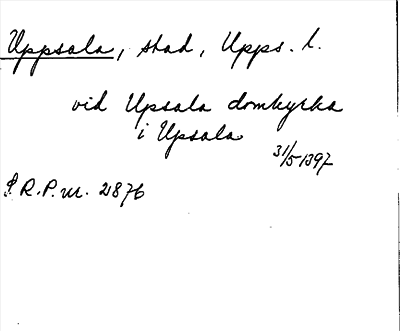 Uppsala, stad, Upps. l.
vid Upsala domkyrka
i Upsala
31/5 1397
S.R.P. nr. 2876